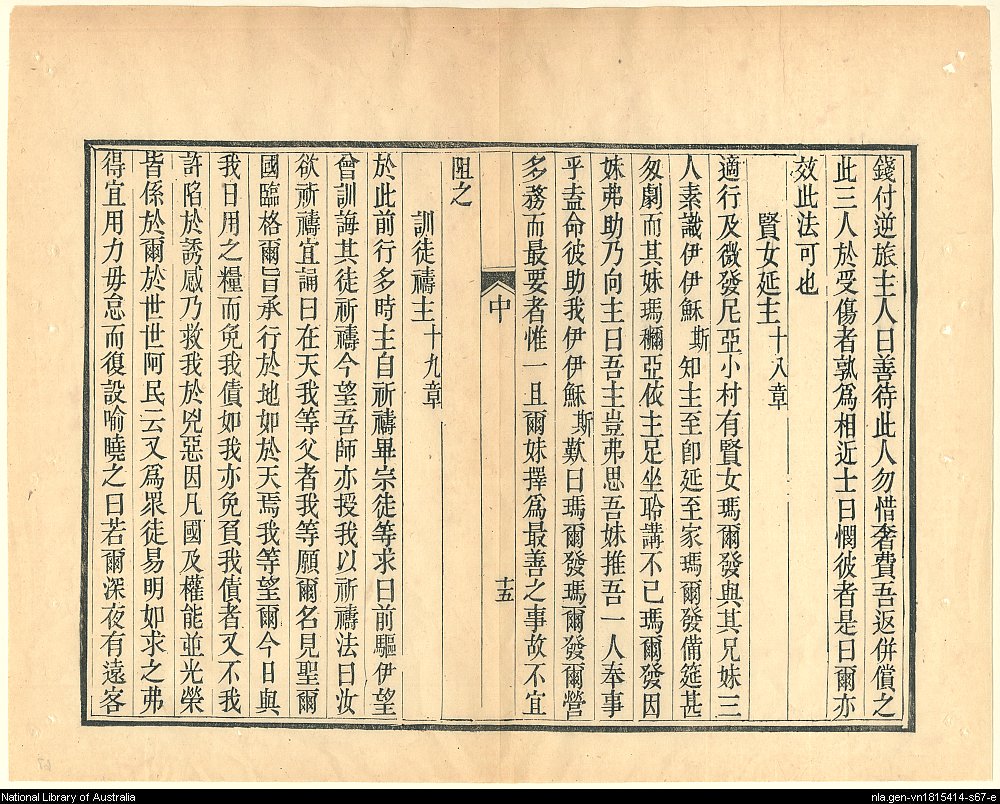 錢付逆旅主人曰善待此人勿惜奢費吾返併償之
此三人於受傷者孰爲相近士曰憫彼者是曰爾亦
效此法可也
賢女延主十八章
適行及微發尼亞小村有賢女瑪爾發與其兄妹三
人素識伊伊穌斯知主至卽延至家瑪爾發備筵甚
匆劇而其妹瑪穪亞依主足坐聆講不已瑪爾發因
妹弗助乃向主曰吾主豈弗思吾妹推吾一人奉事
乎盍命彼助我伊伊穌斯歎曰瑪爾發瑪爾發爾營
多務而最要者惟一且爾妹擇爲最善之事故不宜
阻之
中
十五
訓徒禱主十九章
於此前行多時主自祈禱畢宗徒等求曰前驅伊望
曾訓誨其徒祈禱今望吾師亦授我以祈禱法曰汝
欲祈禱宜誦曰在天我等父者我等願爾名見聖爾
國臨格爾旨承行於地如於天焉我等望爾今日與
我日用之糧而免我債如我亦免負我債者又不我
許陷於誘感乃救我於兇惡因凡國及權能並光榮
皆係於爾於世世阿民云又爲眾徒易明如求之弗
得宜用力毋怠而復設喻曉之曰若爾深夜有遠客
National Library of Australia
nla.gen-vn1815414-s67-e